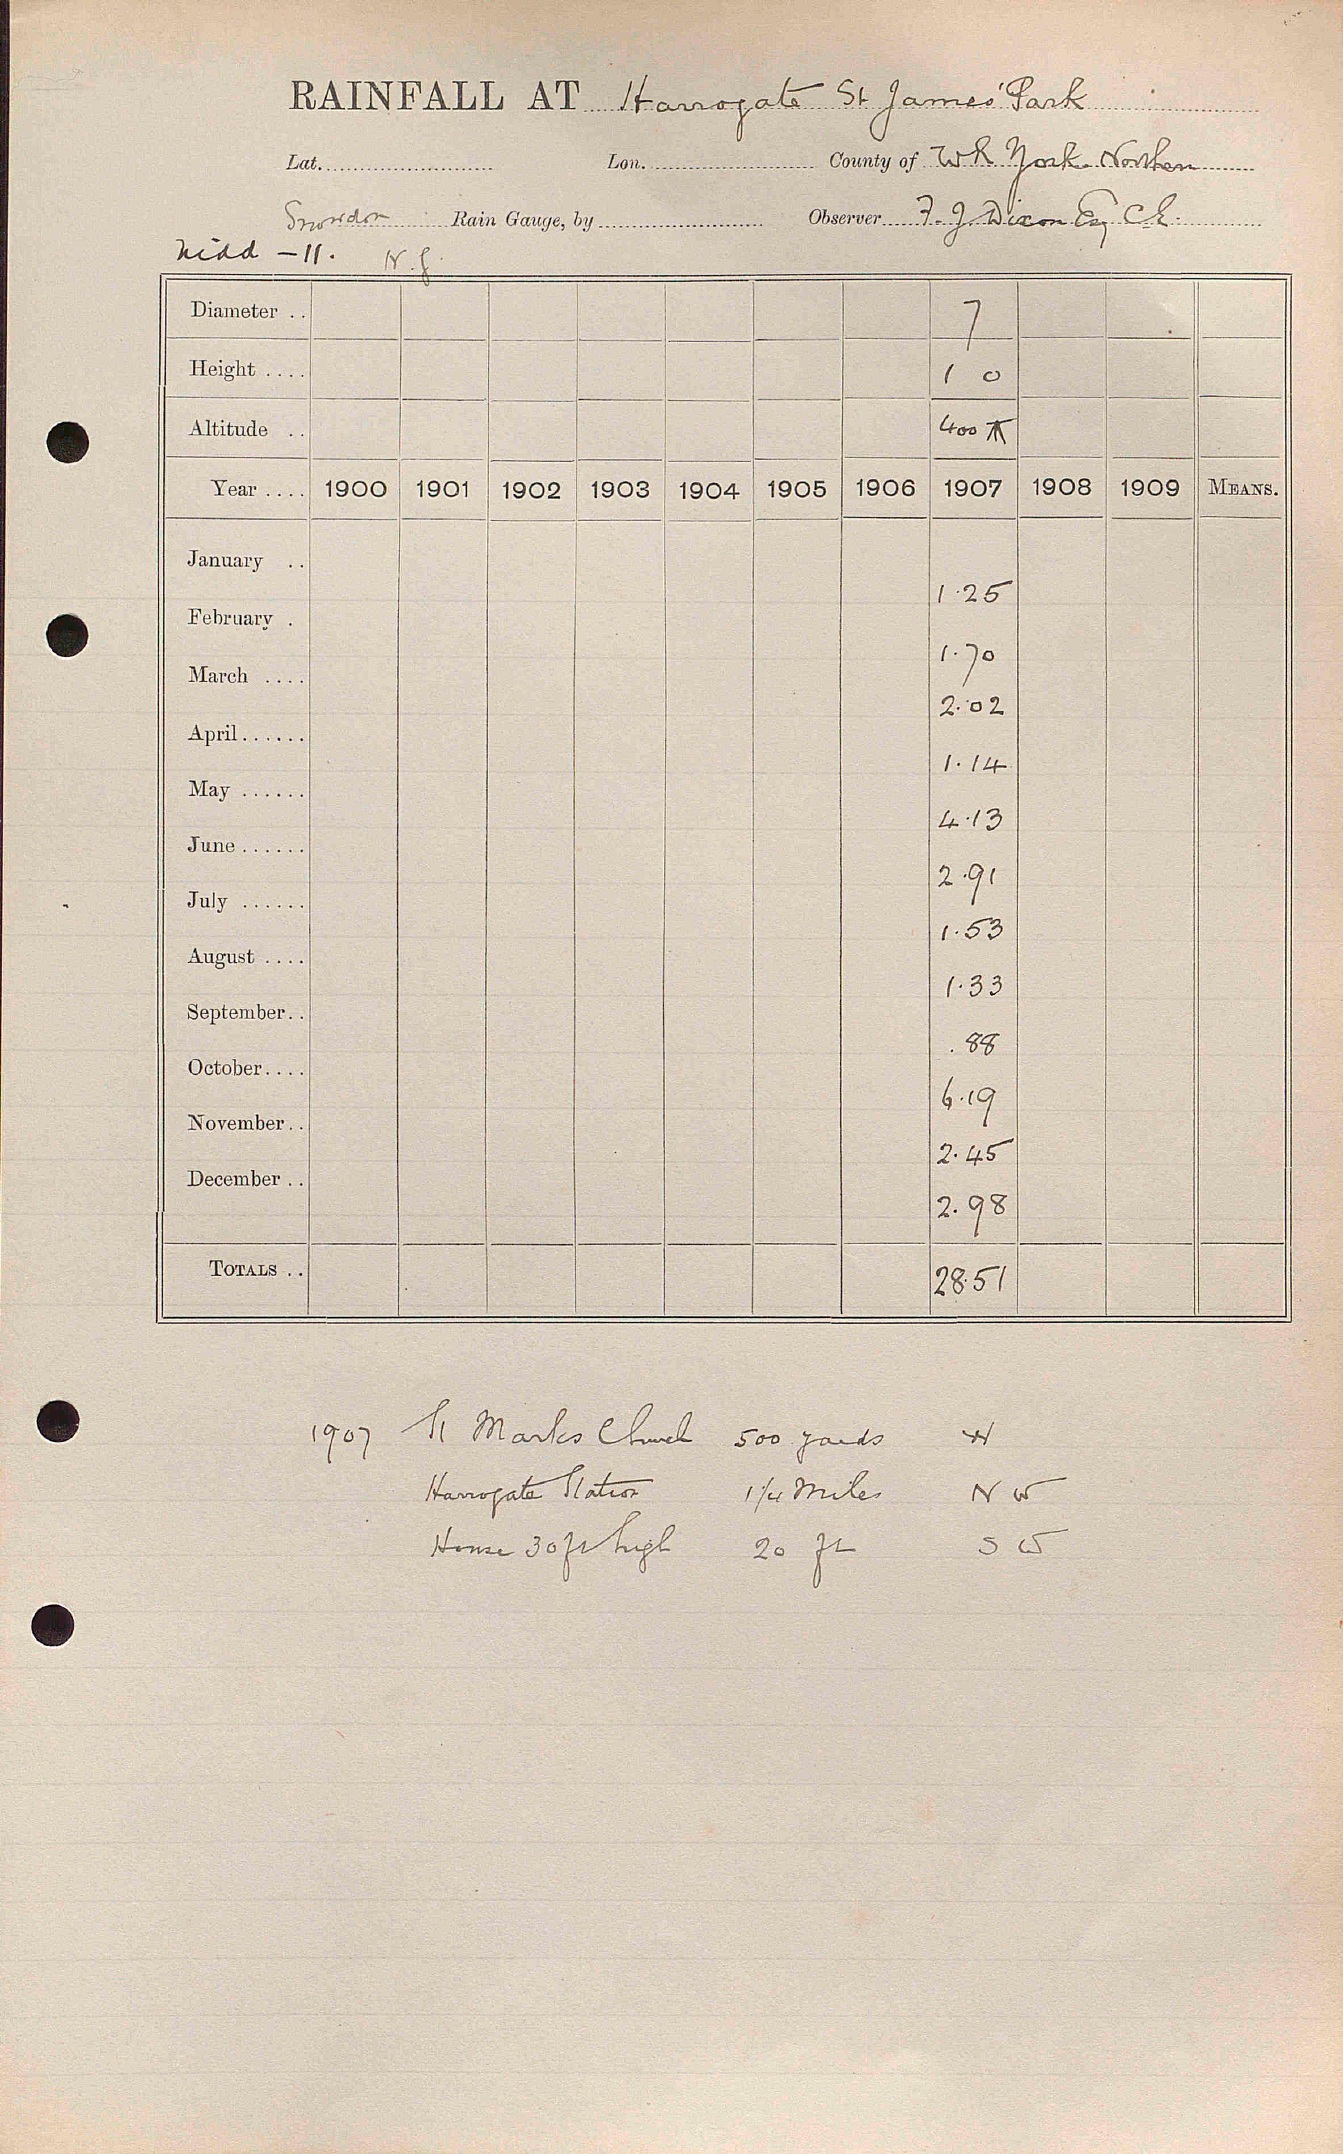 RAINFALL AT Harrogate St James' Park
Lat. Lon. County of W R York Northern
Snowdon Rain Gauge, by Observer F. J. Dixon Esq C.E.
Nidd - 11. N.g.
Diameter .. 7
Height .... 1 0
Altitude .. 400 ft
Year .... 1900 1901 1902 1903 1904 1905 1906 1907 1908 1909 MEANS.
January .. 1.25
February . 1.70
March .... 2.02
April...... 1.14
May ...... 4.13
June...... 2.91
July ...... 1.53
August .... 1.33
September.. .88
October.... 6.19
November.. 2.45
December .. 2.98
TOTALS .. 28.51
1907 St Marks Church 500 yards
Harrogate Station 1 1/4 Miles N W
House 30 ft high 20 ft S W